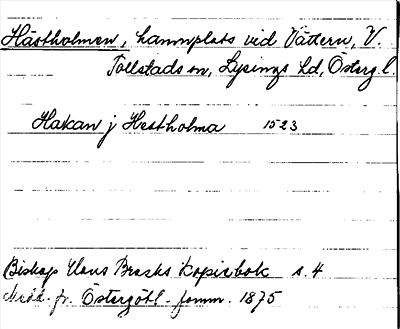 Hästholmen, hamnplats vid Vättern, V.
Tollstads sn, Lysings hd, Österg.l.
Hakan j Hestholma 1523
Biskop Hans Brasks kopiebok s. 4
Medd. fr. Östergötl. fornm. 1875